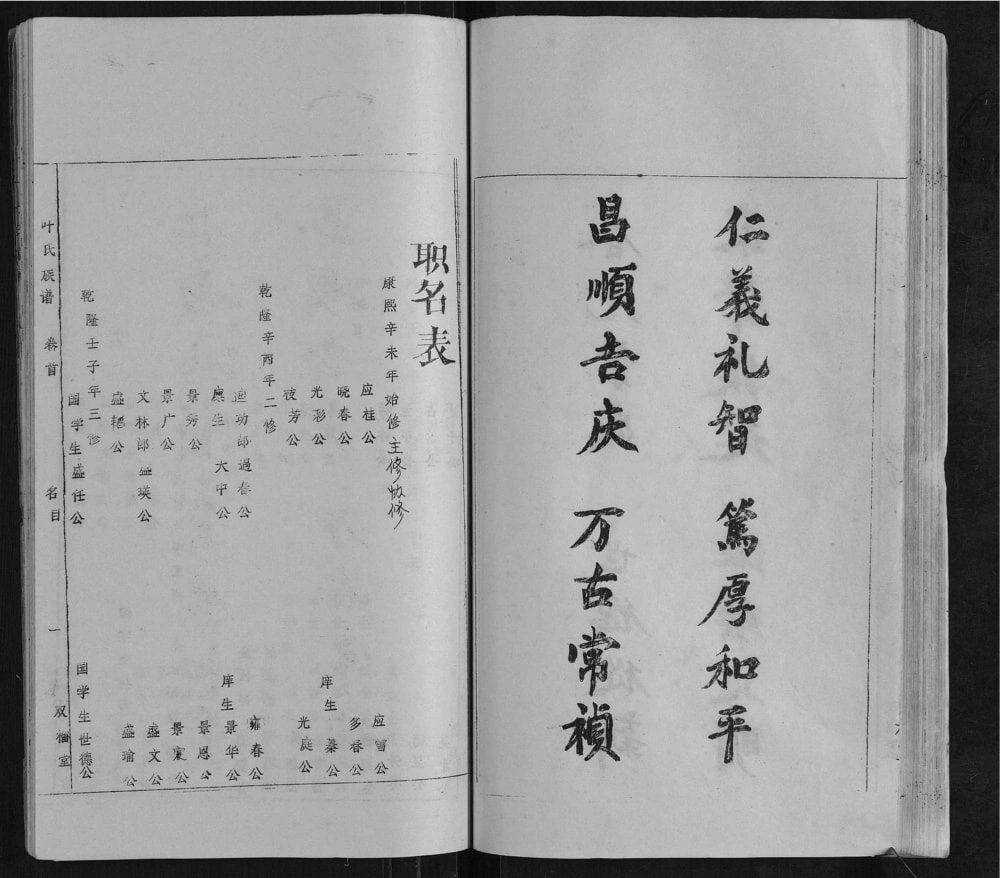 仁義礼智 篤厚和平
昌順吉庆 万古常禎
职名表
康熙辛未年始修主修协修
应桂公 应雪公
晓春公 多春公
光彩公 庠生 蓁公
枝芳公 光庭公
乾隆辛酉年二修
迪功郎遇春公 雍春公
廪生 大中公 庠生景华公
景芳公 景恩公
景广公 景寅公
文林郎盛瑛公 盛文公
盛耦公 盛瑜公
乾隆壬子年三修
国学生盛任公 国学生世德公
叶氏族谱 卷首 名目 一 双福堂